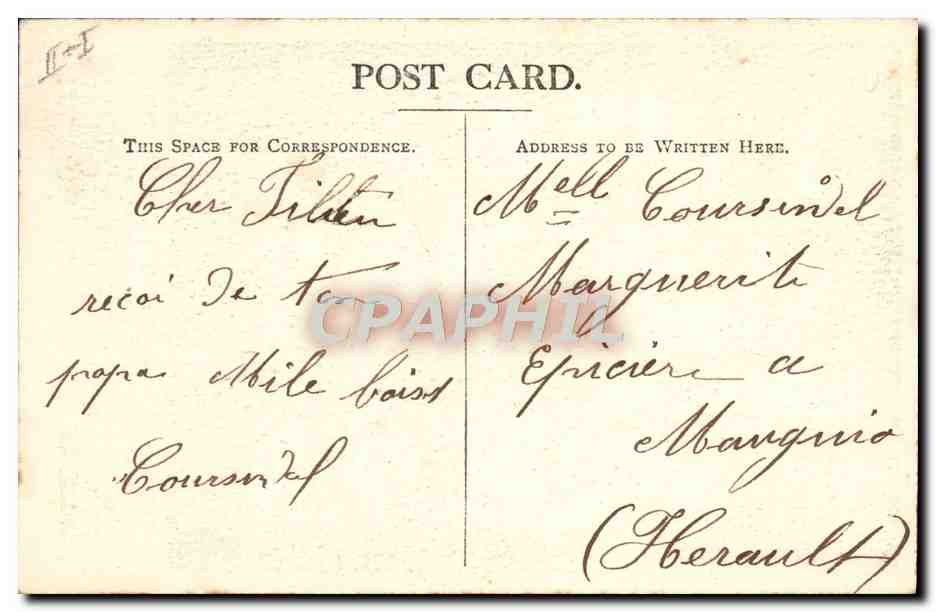 II+I
POST CARD.
THIS SPACE FOR CORRESPONDENCE.
Cher
recoi de ton
papa Mile
Coursindel
ADDRESS TO BE WRITTEN HERE.
Mell Coursindel
Marguerite
Epiciere a
Mauguio
(Herault)
CPAPHIL